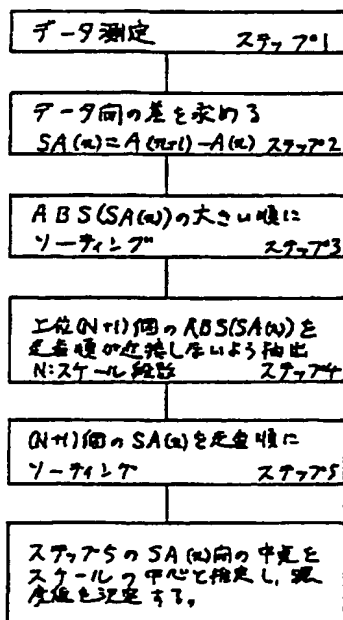 データ測定 ステップ1
データ間の差を求める
SA(n)=A(n+1)-A(n) ステップ2
ABS(SA(n))の大きい順に
ソーティング ステップ3
上位(N+1)個のABS(SA(n))を
走査順が近接しないよう抽出
N:スケール段数 ステップ4
(N+1)個のSA(n)を走査順に
ソーティング ステップ5
ステップ5のSA(n)間の中点を
スケールの中心と推定し、濃
度値を決定する。